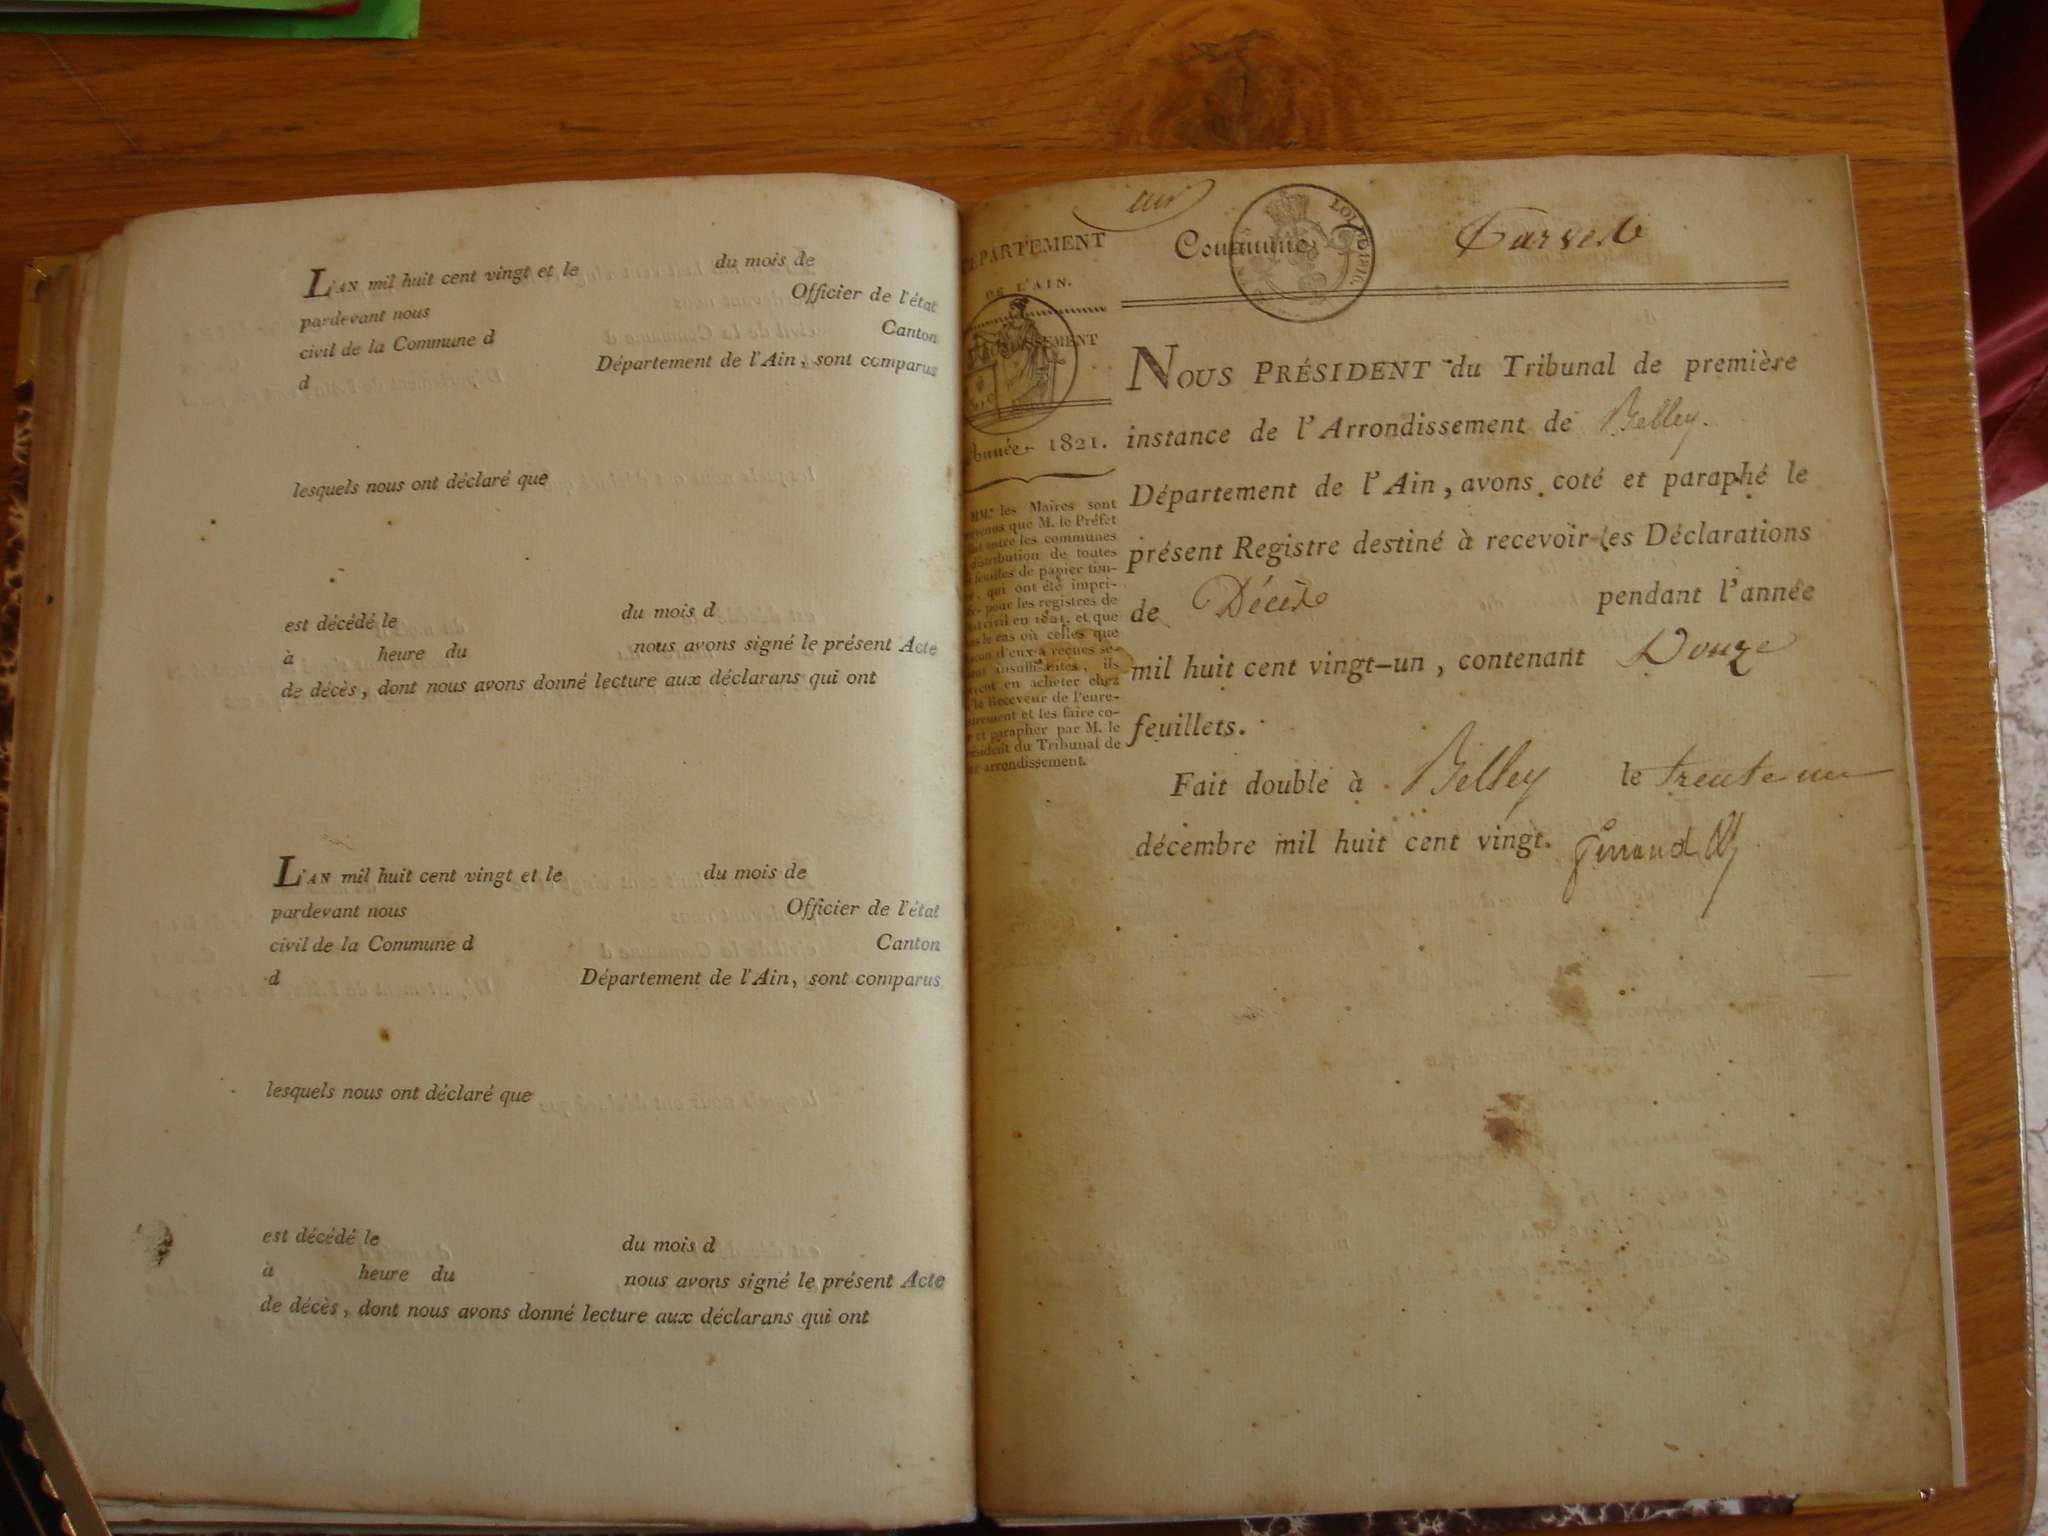 L'AN mil huit cent vingt et le du mois de
pardevant nous Officier de l'état
civil de la Commune d Canton
d Département de l'Ain, sont comparus
lesquels nous ont déclaré que
est décédé le du mois d
à heure du nous avons signé le présent Acte
de décès, dont nous avons donné lecture aux déclarans qui ont
L'AN mil huit cent vingt et le du mois de
pardevant nous Officier de l'état
civil de la Commune d Canton
d Département de l'Ain, sont comparus
lesquels nous ont déclaré que
est décédé le du mois d
à heure du nous avons signé le présent Acte
de décès, dont nous avons donné lecture aux déclarans qui ont
DÉPARTEMENT
DE L'AIN.
1821.
MM.rs les Maires sont
que M. le Préfet
entre les communes
de toutes
feuilles de papier tim-
qui ont été impri-
pour les registres de
civil en 1821, et que
le cas où celles que
d'eux a reçues se-
insuffisantes, ils
en acheter chez
le Receveur de l'enre-
et les faire co-
et parapher par M. le
du Tribunal de
arrondissement.
Commune
NOUS PRÉSIDENT du Tribunal de première
instance de l'Arrondissement de Belley.
Département de l'Ain, avons coté et paraphé le
présent Registre destiné à recevoir les Déclarations
de Décès pendant l'année
mil huit cent vingt-un, contenant Douze
feuillets.
Fait double à Belley le trente un
décembre mil huit cent vingt.